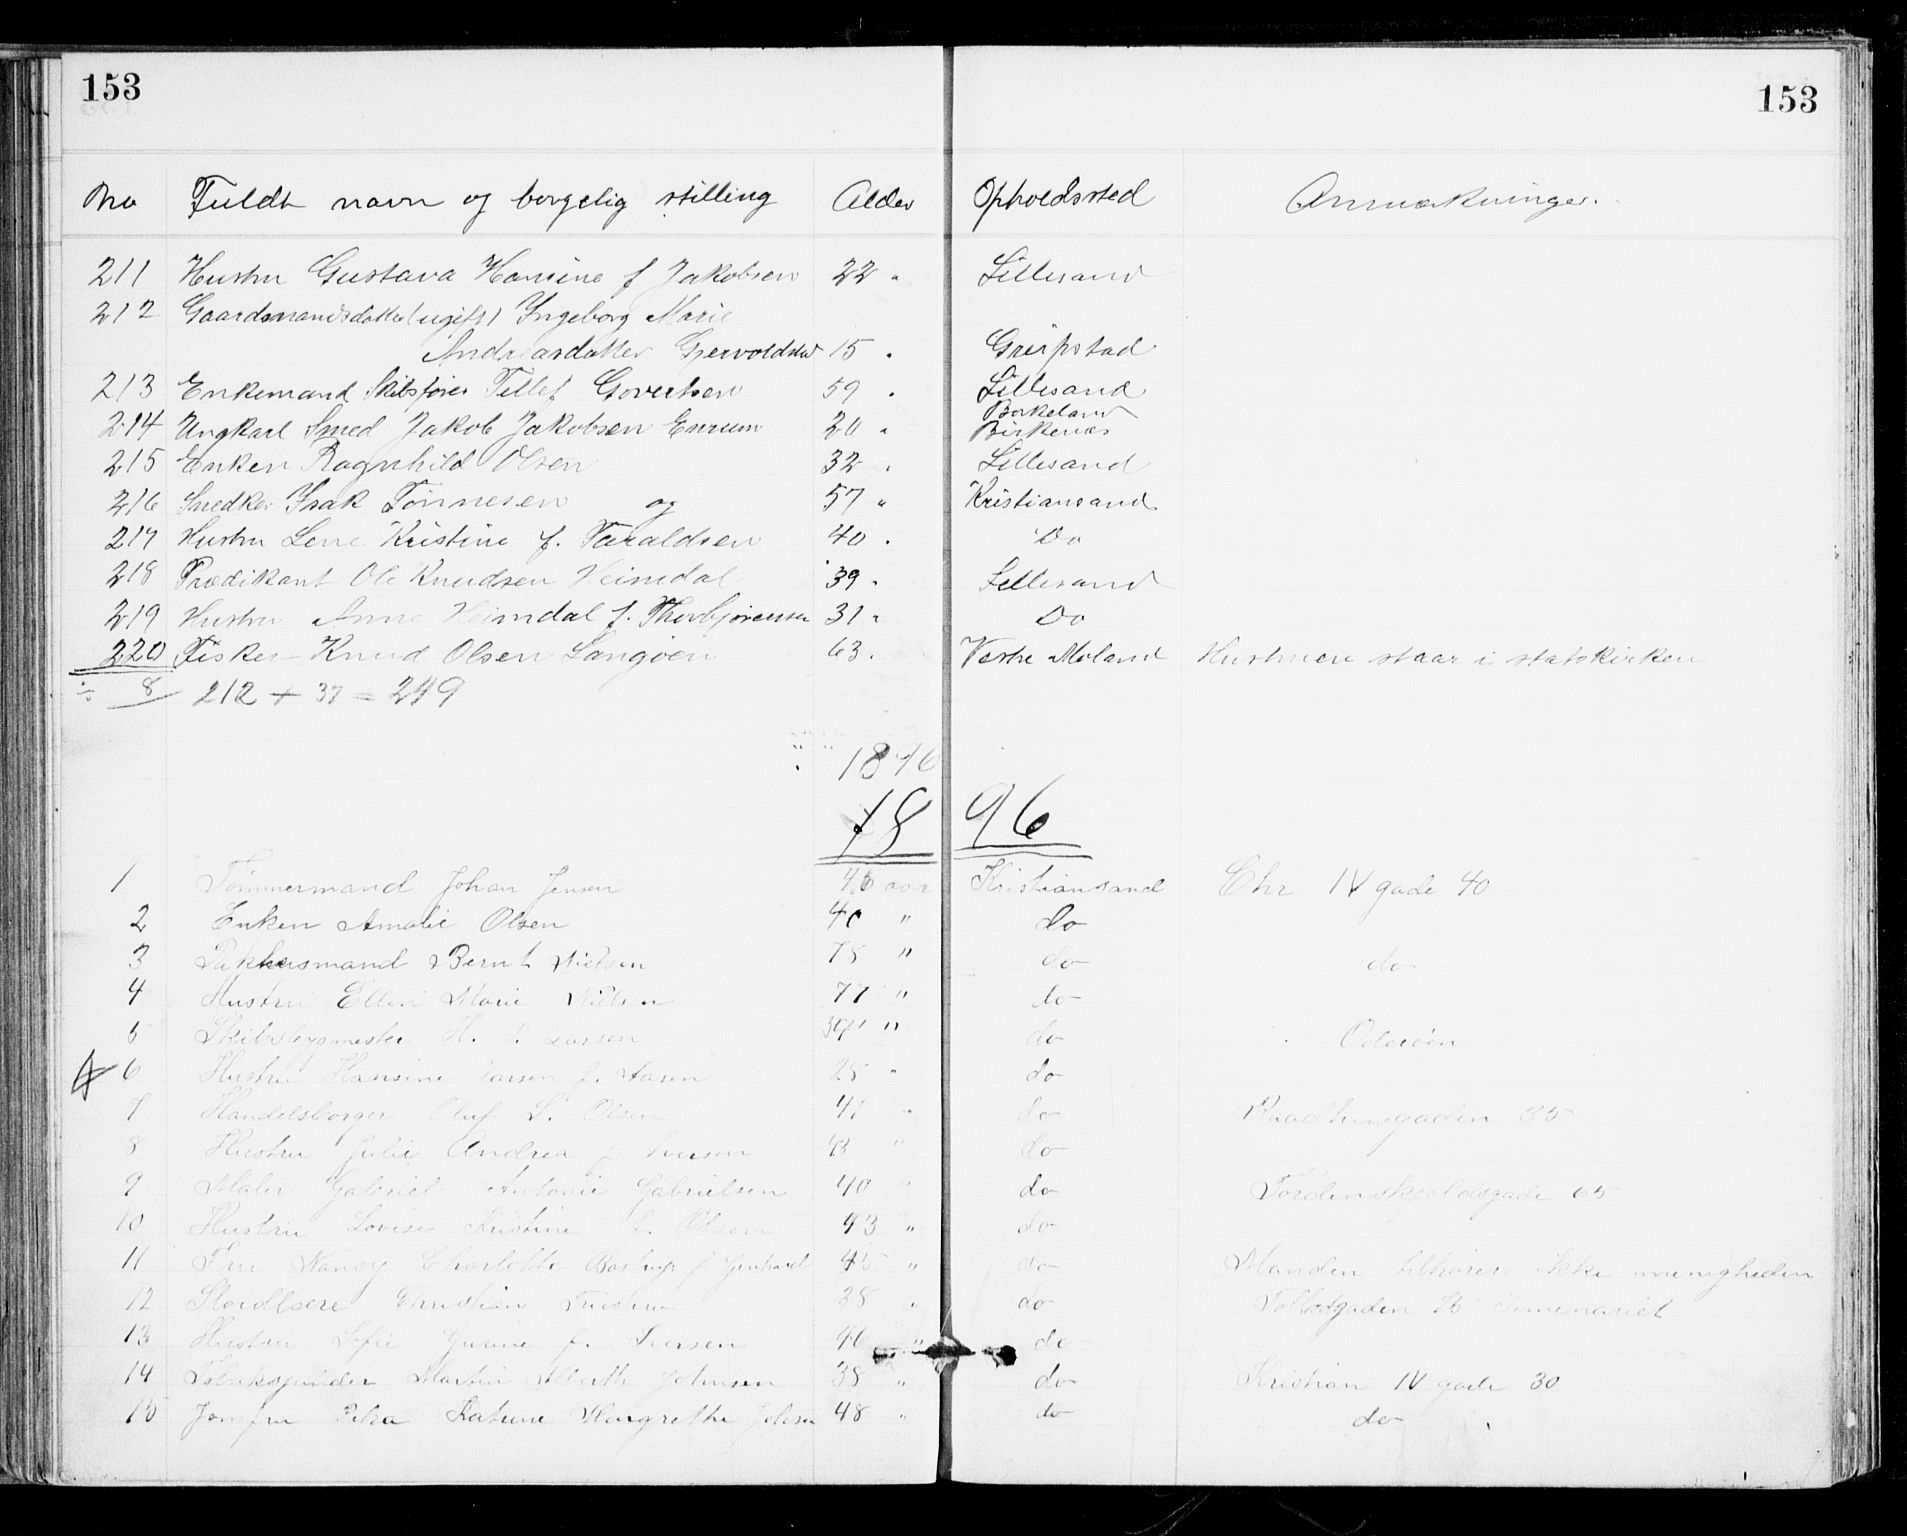 153 153
No Fuldt navn og borgelig stilling Alder Opholdssted Anmærkninger.
211 Hustru Gustava Hansine f Jakobsen 22 " Lillesand
212 Gaardmandsdatter (ugift) Ingeborg Marie
Andreasdatter 15 " Greipstad
213 Enkemand Skibsfører Tellef Govertsen 59 " Lillesand
Birkeland
214 Ungkarl Smed Jakob Jakobsen 20 " Birkenæs
215 Enken Ragnhild Olsen 32 " Lillesand
216 Snedker Isak Tønnesen og 57 " Kristiansand
217 Hustru Lene Kristine f. Taraldsen 40 " Do
218 Prædikant Ole Knudsen Heimdal 39 " Lillesand
219 Hustru Anne Heimdal f. Thorbjørensen 31 " Do
220 Fisker Knud Olsen Langøen 63 . Vestre Moland Hustruen staar i statskirken
÷ 8 212 + 37 = 249
1896
1896
1 Tømmermand Johan Jensen 46 aar Kristiansand Chr IV gade 40
2 Enken Amalie Olsen 40 " do
3 Pakhusmand Bernt Nielsen 78 " do do
4 Hustru Ellen Marie Nielsen 77 " do
5 Skibsbygmester H. Larsen " do Odderøen
6 Hustru Hansine Larsen f. Aasen 28 " do
7 Handelsborger Oluf S. Olsen 41 " do Raadhusgaden 35
8 Hustru Julie Andrea f. Iversen 43 " do
9 Maler Gabriel Antonie Gabrielsen 40 " do Tordenskjoldsgade 65
10 Hustru Lovise Kristine f. Olsen 43 " do
11 Fru Nancy Charlotte f 45 " do Manden tilhører ikke menigheden
12 Christian 38 " do Tolbodgaden 75
13 Hustru Sofie f. Iversen 40 " do
14 Martin Johnsen 38 " do Kristian IV gade 30
15 Jomfru Petra Katrine Margrethe 48 " do do